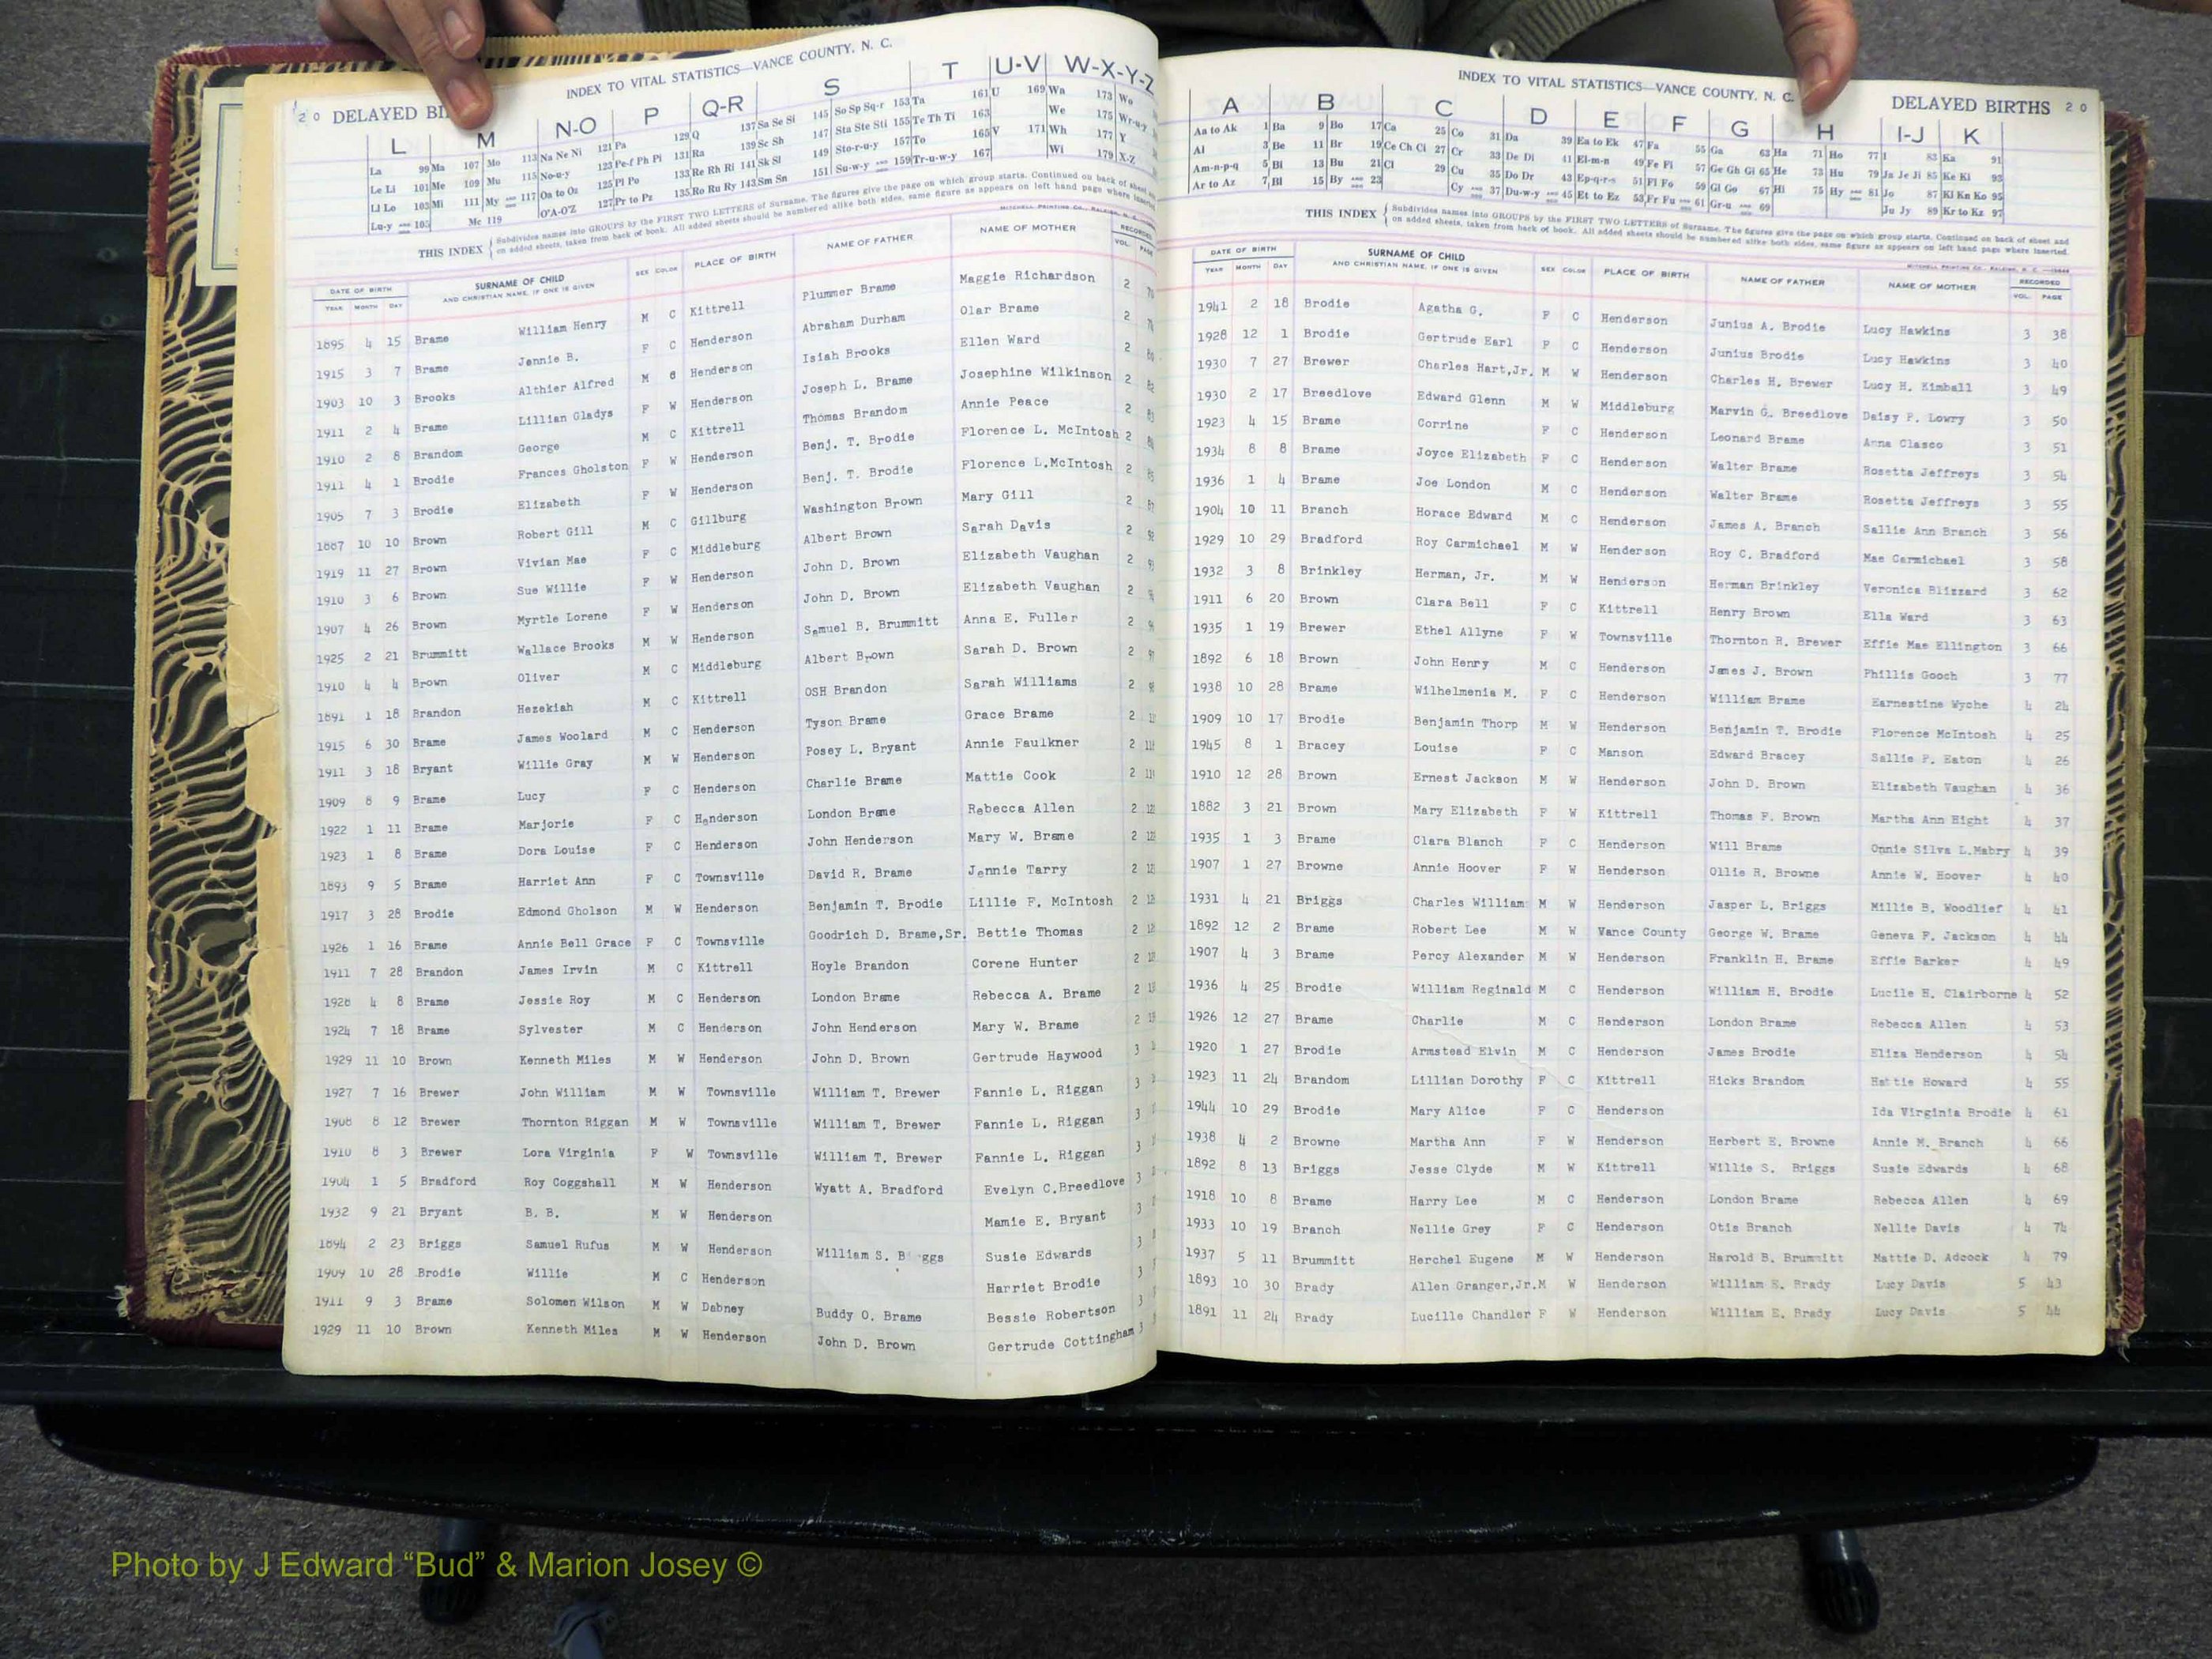 INDEX TO VITAL STATISTICS—VANCE COUNTY, N. C.
20 DELAYED BI
L M N-O P Q-R S T U-V W-X-Y-Z
La 99 Ma 107 Mo 113 Na Ne Ni 121 Pa 129 Q 137 Sa Se Si 145 So Sp Sq-r 153 Ta 161 U 169 Wa 173 Wo
Le Li 101 Me 109 Mu 115 No-u-y 123 Pe-f Ph Pi 131 Ra 139 Sc Sh 147 Sta Ste Sti 155 Te Th Ti 163 We 175 Wr-u-y
Ll Lo 103 Mi 111 My and 117 Oa to Oz 125 Pl Po 133 Re Rh Ri 141 Sk Sl 149 Sto-r-u-y 157 To 165 V 171 Wh 177 Y
Lu-y and 105 Mc 119 O'A-O'Z 127 Pr to Pz 135 Ro Ru Ry 143 Sm Sn 151 Su-w-y and 159 Tr-u-w-y 167 Wi 179 X-Z
THIS INDEX { Subdivides names into GROUPS by the FIRST TWO LETTERS of Surname. The figures give the page on which group starts. Continued on back of sheet
on added sheets, taken from back of book. All added sheets should be numbered alike both sides, same figure as appears on left hand page where inserted.
MITCHELL PRINTING CO., RALEIGH, N. C.
DATE OF BIRTH SURNAME OF CHILD SEX COLOR PLACE OF BIRTH NAME OF FATHER NAME OF MOTHER RECORDED
YEAR MONTH DAY AND CHRISTIAN NAME, IF ONE IS GIVEN VOL. PAGE
1895 4 15 Brame William Henry M C Kittrell Plummer Brame Maggie Richardson 2
1915 3 7 Brame Jennie B. F C Henderson Abraham Durham Olar Brame 2
1903 10 3 Brooks Althier Alfred M C Henderson Isiah Brooks Ellen Ward 2
1911 2 4 Brame Lillian Gladys F W Henderson Joseph L. Brame Josephine Wilkinson 2
1910 2 8 Brandom George M C Kittrell Thomas Brandom Annie Peace 2
1911 4 1 Brodie Frances Gholston F W Henderson Benj. T. Brodie Florence L. McIntosh 2
1905 7 3 Brodie Elizabeth F W Henderson Benj. T. Brodie Florence L.McIntosh 2
1887 10 10 Brown Robert Gill M C Gillburg Washington Brown Mary Gill 2
1919 11 27 Brown Vivian Mae F C Middleburg Albert Brown Sarah Davis 2
1910 3 6 Brown Sue Willie F W Henderson John D. Brown Elizabeth Vaughan 2
1907 4 26 Brown Myrtle Lorene F W Henderson John D. Brown Elizabeth Vaughan 2
1925 2 21 Brummitt Wallace Brooks M W Henderson Samuel B. Brummitt Anna E. Fuller 2
1910 4 4 Brown Oliver M C Middleburg Albert Brown Sarah D. Brown 2
1891 1 18 Brandon Hezekiah M C Kittrell OSH Brandon Sarah Williams 2
1915 6 30 Brame James Woolard M C Henderson Tyson Brame Grace Brame 2
1911 3 18 Bryant Willie Gray M W Henderson Posey L. Bryant Annie Faulkner 2
1909 8 9 Brame Lucy F C Henderson Charlie Brame Mattie Cook 2
1922 1 11 Brame Marjorie F C Henderson London Brame Rebecca Allen 2
1923 1 8 Brame Dora Louise F C Henderson John Henderson Mary W. Brame 2
1893 9 5 Brame Harriet Ann F C Townsville David R. Brame Jennie Tarry 2
1917 3 28 Brodie Edmond Gholson M W Henderson Benjamin T. Brodie Lillie F. McIntosh 2
1926 1 16 Brame Annie Bell Grace F C Townsville Goodrich D. Brame,Sr. Bettie Thomas 2
1911 7 28 Brandon James Irvin M C Kittrell Hoyle Brandon Corene Hunter 2
1928 4 8 Brame Jessie Roy M C Henderson London Brame Rebecca A. Brame 2
1924 7 18 Brame Sylvester M C Henderson John Henderson Mary W. Brame 2
1929 11 10 Brown Kenneth Miles M W Henderson John D. Brown Gertrude Haywood 3
1927 7 16 Brewer John William M W Townsville William T. Brewer Fannie L. Riggan 3
1908 8 12 Brewer Thornton Riggan M W Townsville William T. Brewer Fannie L. Riggan 3
1910 8 3 Brewer Lora Virginia F W Townsville William T. Brewer Fannie L. Riggan 3
1904 1 5 Bradford Roy Coggshall M W Henderson Wyatt A. Bradford Evelyn C.Breedlove 3
1932 9 21 Bryant B. B. M W Henderson Mamie E. Bryant 3
1894 2 23 Briggs Samuel Rufus M W Henderson William S. B ggs Susie Edwards 3
1909 10 28 Brodie Willie M C Henderson Harriet Brodie 3
1911 9 3 Brame Solomen Wilson M W Dabney Buddy O. Brame Bessie Robertson 3
1929 11 10 Brown Kenneth Miles M W Henderson John D. Brown Gertrude Cottingham 3
INDEX TO VITAL STATISTICS—VANCE COUNTY, N. C.
DELAYED BIRTHS 20
A B C D E F G H I-J K
Aa to Ak 1 Ba 9 Bo 17 Ca 25 Co 31 Da 39 Ea to Ek 47 Fa 55 Ga 63 Ha 71 Ho 77 I 83 Ka 91
Al 3 Be 11 Br 19 Ce Ch Ci 27 Cr 33 De Di 41 El-m-n 49 Fe Fi 57 Ge Gh Gi 65 He 73 Hu 79 Ja Je Ji 85 Ke Ki 93
Am-n-p-q 5 Bi 13 Bu 21 Cl 29 Cu 35 Do Dr 43 Ep-q-r-s 51 Fl Fo 59 Gl Go 67 Hi 75 Hy and 81 Jo 87 Kl Kn Ko 95
Ar to Az 7 Bl 15 By and 23 Cy and 37 Du-w-y and 45 Et to Ez 53 Fr Fu and 61 Gr-u and 69 Ju Jy 89 Kr to Kz 97
THIS INDEX { Subdivides names into GROUPS by the FIRST TWO LETTERS of Surname. The figures give the page on which group starts. Continued on back of sheet and
on added sheets, taken from back of book. All added sheets should be numbered alike both sides, same figure as appears on left hand page where inserted.
MITCHELL PRINTING CO. RALEIGH, N. C.
DATE OF BIRTH SURNAME OF CHILD SEX COLOR PLACE OF BIRTH NAME OF FATHER NAME OF MOTHER RECORDED
YEAR MONTH DAY AND CHRISTIAN NAME, IF ONE IS GIVEN VOL. PAGE
1941 2 18 Brodie Agatha G. F C Henderson Junius A. Brodie Lucy Hawkins 3 38
1928 12 1 Brodie Gertrude Earl F C Henderson Junius Brodie Lucy Hawkins 3 40
1930 7 27 Brewer Charles Hart,Jr. M W Henderson Charles H. Brewer Lucy H. Kimball 3 49
1930 2 17 Breedlove Edward Glenn M W Middleburg Marvin G. Breedlove Daisy P. Lowry 3 50
1923 4 15 Brame Corrine F C Henderson Leonard Brame Anna Clasco 3 51
1934 8 8 Brame Joyce Elizabeth F C Henderson Walter Brame Rosetta Jeffreys 3 54
1936 1 4 Brame Joe London M C Henderson Walter Brame Rosetta Jeffreys 3 55
1904 10 11 Branch Horace Edward M C Henderson James A. Branch Sallie Ann Branch 3 56
1929 10 29 Bradford Roy Carmichael M W Henderson Roy C. Bradford Mae Carmichael 3 58
1932 3 8 Brinkley Herman, Jr. M W Henderson Herman Brinkley Veronica Blizzard 3 62
1911 6 20 Brown Clara Bell F C Kittrell Henry Brown Ella Ward 3 63
1935 1 19 Brewer Ethel Allyne F W Townsville Thornton R. Brewer Effie Mae Ellington 3 66
1892 6 18 Brown John Henry M C Henderson James J. Brown Phillis Gooch 3 77
1938 10 28 Brame Wilhelmenia M. F C Henderson William Brame Earnestine Wyche 4 24
1909 10 17 Brodie Benjamin Thorp M W Henderson Benjamin T. Brodie Florence McIntosh 4 25
1945 8 1 Bracey Louise F C Manson Edward Bracey Sallie P. Eaton 4 26
1910 12 28 Brown Ernest Jackson M W Henderson John D. Brown Elizabeth Vaughan 4 36
1882 3 21 Brown Mary Elizabeth F W Kittrell Thomas F. Brown Martha Ann Hight 4 37
1935 1 3 Brame Clara Blanch F C Henderson Will Brame Onnie Silva L.Mabry 4 39
1907 1 27 Browne Annie Hoover F W Henderson Ollie R. Browne Annie W. Hoover 4 40
1931 4 21 Briggs Charles William M W Henderson Jasper L. Briggs Millie B. Woodlief 4 41
1892 12 2 Brame Robert Lee M W Vance County George W. Brame Geneva F. Jackson 4 44
1907 4 3 Brame Percy Alexander M W Henderson Franklin H. Brame Effie Barker 4 49
1936 4 25 Brodie William Reginald M C Henderson William H. Brodie Lucile H. Clairborne 4 52
1926 12 27 Brame Charlie M C Henderson London Brame Rebecca Allen 4 53
1920 1 27 Brodie Armstead Elvin M C Henderson James Brodie Eliza Henderson 4 54
1923 11 24 Brandom Lillian Dorothy F C Kittrell Hicks Brandom Hattie Howard 4 55
1944 10 29 Brodie Mary Alice F C Henderson Ida Virginia Brodie 4 61
1938 4 2 Browne Martha Ann F W Henderson Herbert E. Browne Annie M. Branch 4 66
1892 8 13 Briggs Jesse Clyde M W Kittrell Willie S. Briggs Susie Edwards 4 68
1918 10 8 Brame Harry Lee M C Henderson London Brame Rebecca Allen 4 69
1933 10 19 Branch Nellie Grey F C Henderson Otis Branch Nellie Davis 4 74
1937 5 11 Brummitt Herchel Eugene M W Henderson Harold B. Brummitt Mattie D. Adcock 4 79
1893 10 30 Brady Allen Granger,Jr. M W Henderson William E. Brady Lucy Davis 5 43
1891 11 24 Brady Lucille Chandler F W Henderson William E. Brady Lucy Davis 5 44
Photo by J Edward “Bud” & Marion Josey ©